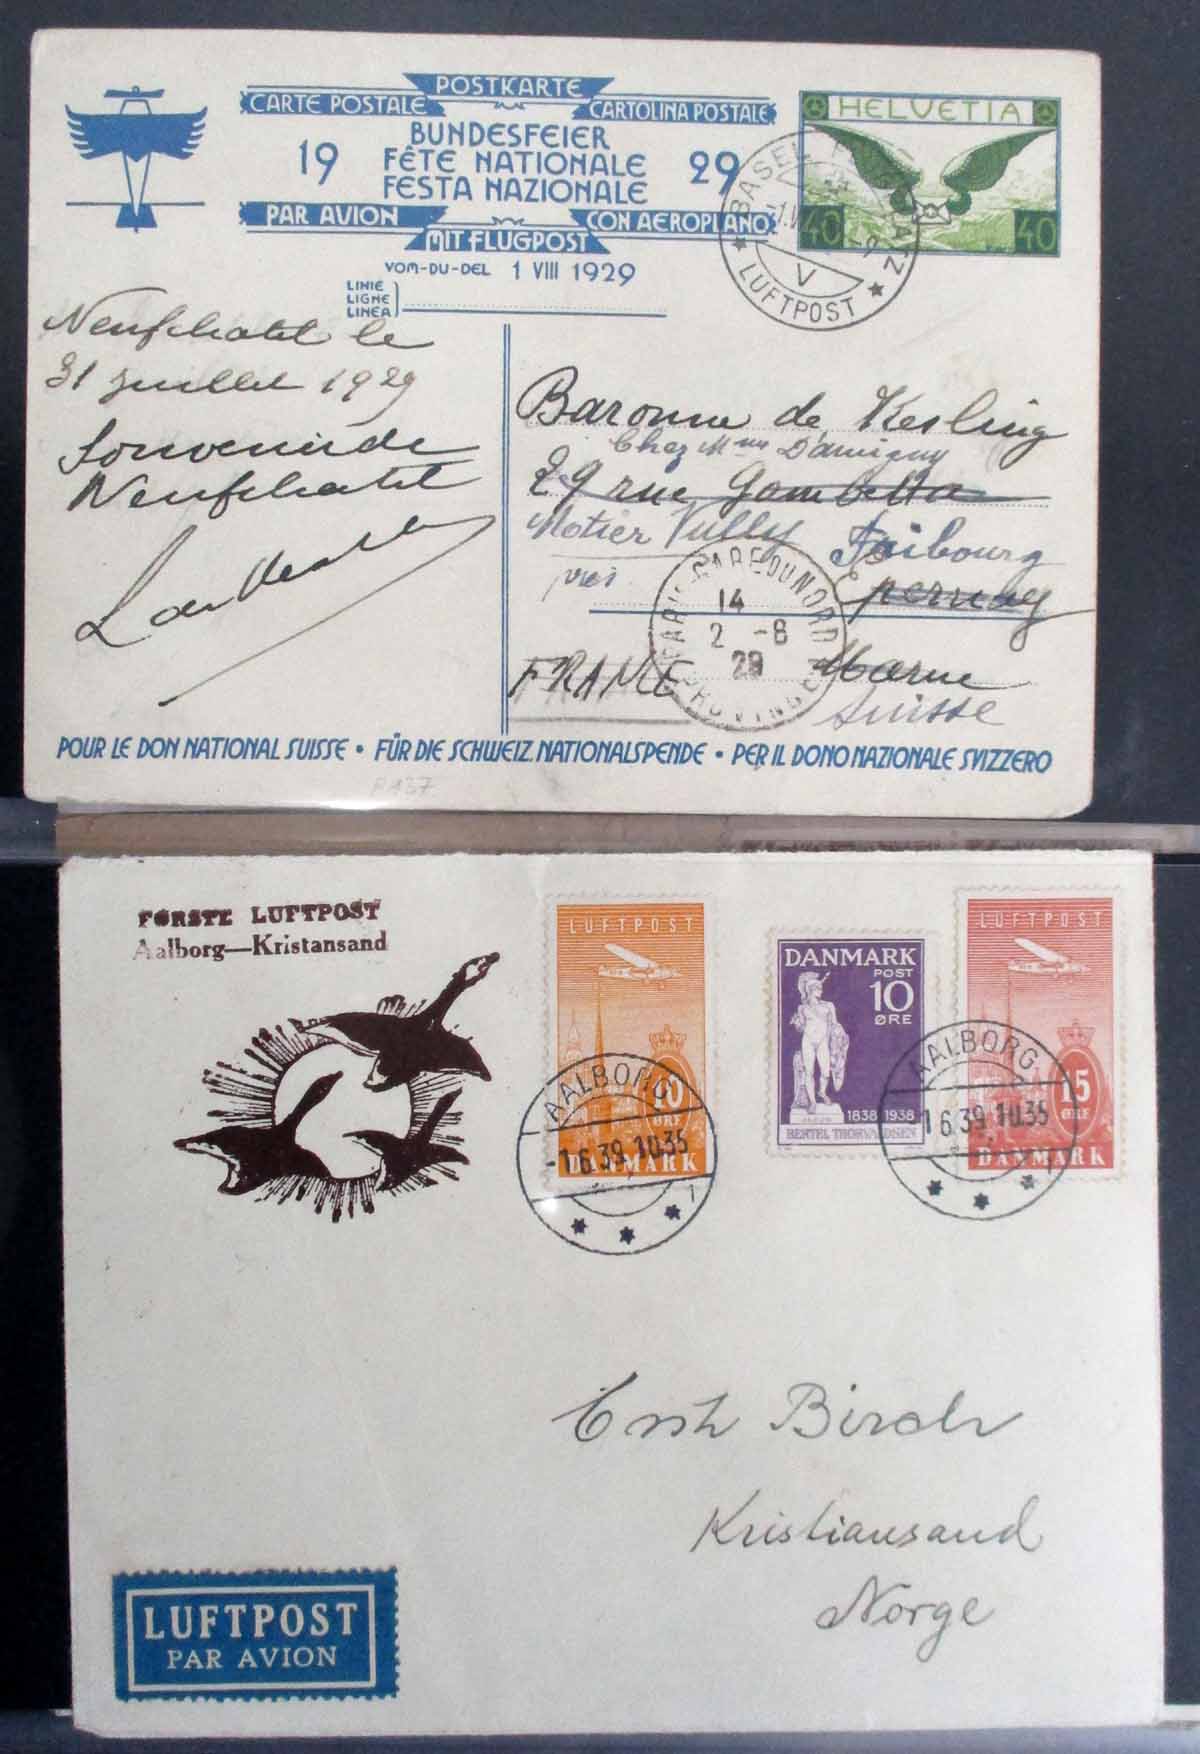 POSTKARTE
CARTE POSTALE
CARTOLINA POSTALE
19 BUNDESFEIER 29
FÊTE NATIONALE
FESTA NAZIONALE
PAR AVION
CON AEROPLANO
MIT FLUGPOST
VOM-DU-DEL 1 VIII 1929
LINIE
LIGNE
LINEA
HELVETIA
40 40
BASEL
V
★ LUFTPOST ★
Neufchatel le
31 Juillet 1929
Souvenir de
Neufchatel
Baronne de Kesling
Chez Mme Damigny
29 rue Gambetta
Motier Vully Fribourg
près Epernay
FRANCE Marne
Suisse
PARIS GARE DU NORD
14
2 - 8
29
PROVINCE
POUR LE DON NATIONAL SUISSE • FÜR DIE SCHWEIZ. NATIONALSPENDE • PER IL DONO NAZIONALE SVIZZERO
P 137
FØRSTE LUFTPOST
Aalborg—Kristansand
LUFTPOST
10
ØRE
DANMARK
DANMARK
POST
10
ØRE
1838 1938
BERTEL THORVALDSEN
LUFTPOST
15
ØRE
DANMARK
AALBORG
-1.6.39.10.35
1
AALBORG
1 6.39.10.35
Birch
Kristiansand
Norge
LUFTPOST
PAR AVION